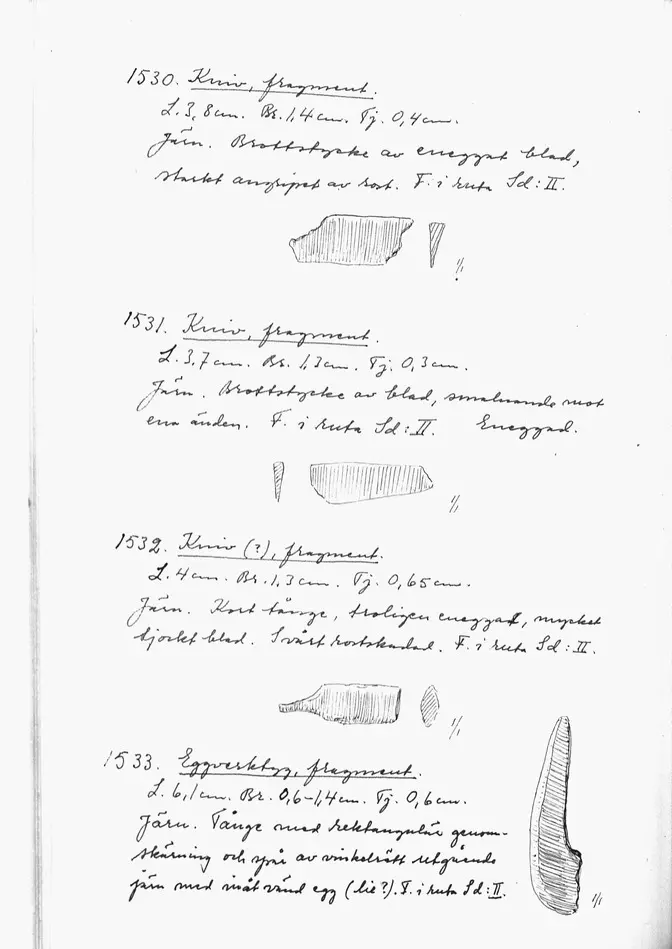 1530. Kniv, fragment.
L. 3,8 cm. Br. 1,4 cm. Tj. 0,4 cm.
Järn. Brottstycke av eneggat blad,
starkt angripet av rost. F. i ruta Sd: II.
1/1
1531. Kniv, fragment.
L. 3,7 cm. Br. 1,3 cm. Tj. 0,3 cm.
Järn. Brottstycke av blad, smalnande mot
ena änden. F. i ruta Sd: II. Eneggad.
1/1
1532. Kniv (?), fragment.
L. 4 cm. Br. 1,3 cm. Tj. 0,65 cm.
Järn. Kort tånge, troligen eneggad, mycket
tjockt blad. Svårt rostskadad. F. i ruta Sd: II.
1/1
1533. Eggverktyg, fragment.
L. 6,1 cm. Br. 0,6-1,4 cm. Tj. 0,6 cm.
Järn. Tånge med rektangulär genom-
skärning och spår av vinkelrätt utgående
järn med inåtvänd egg (lie?). F. i ruta Sd: II.
1/1